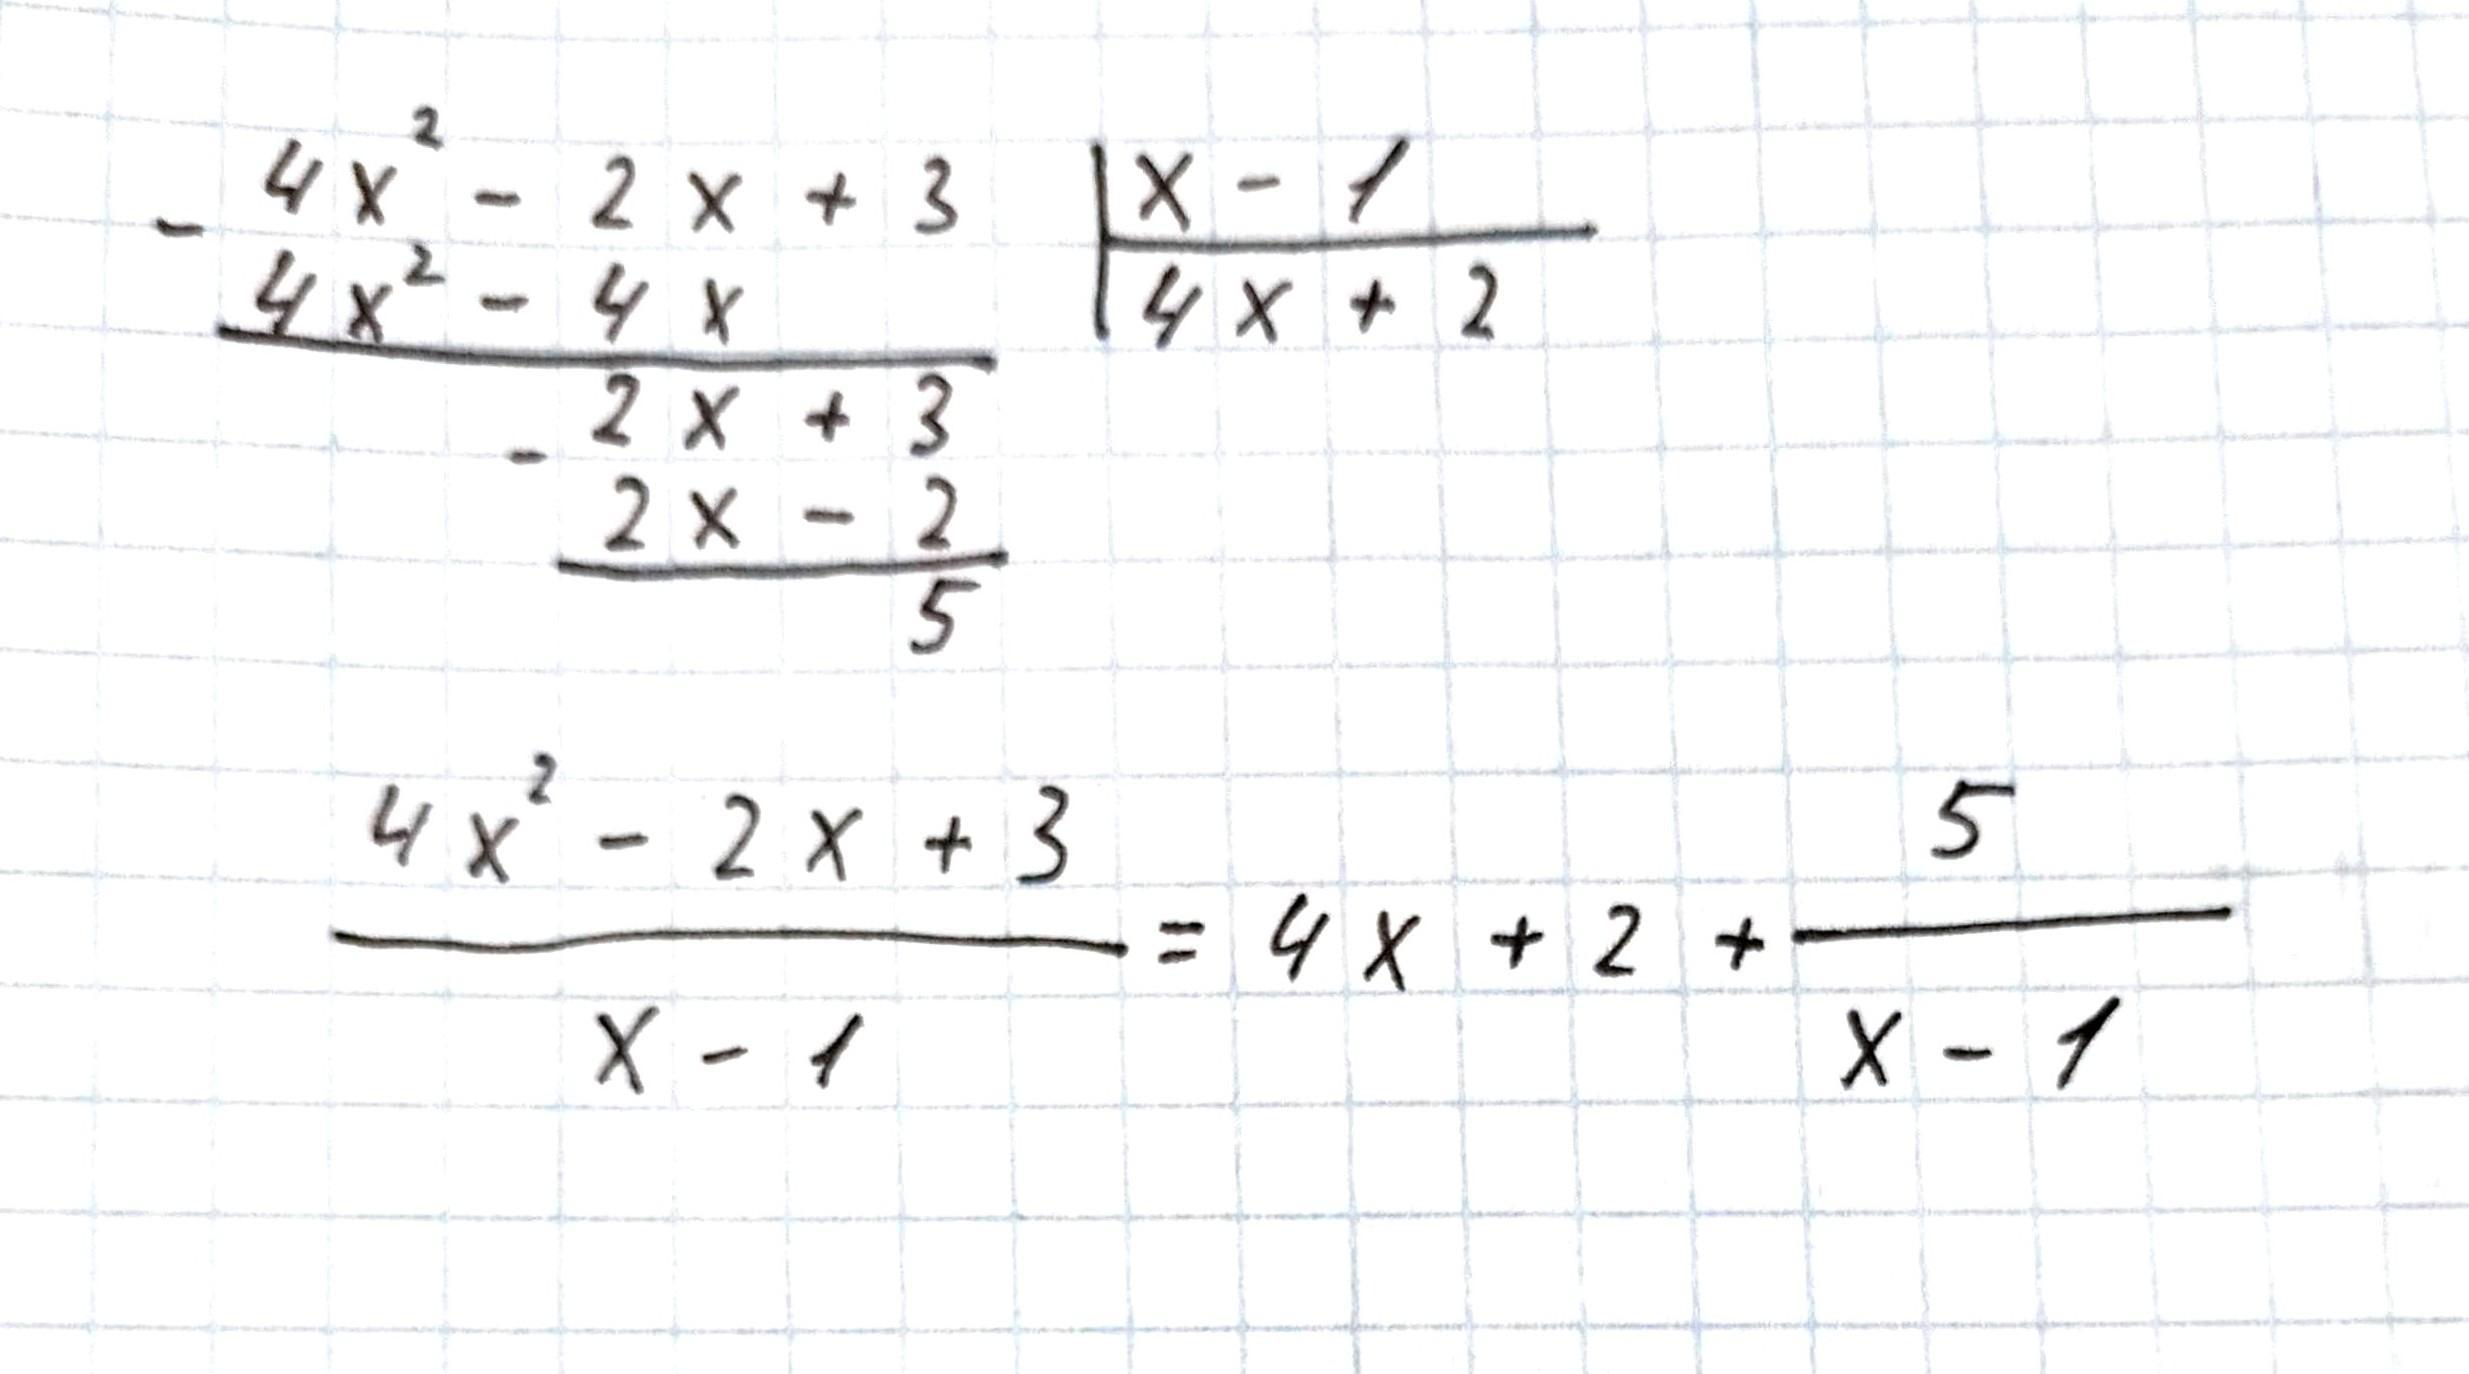 4x² - 2x + 3 | x - 1
- 4x² - 4x | 4x + 2
2x + 3
- 2x - 2
5
4x² - 2x + 3 5
= 4x + 2 +
x - 1 x - 1